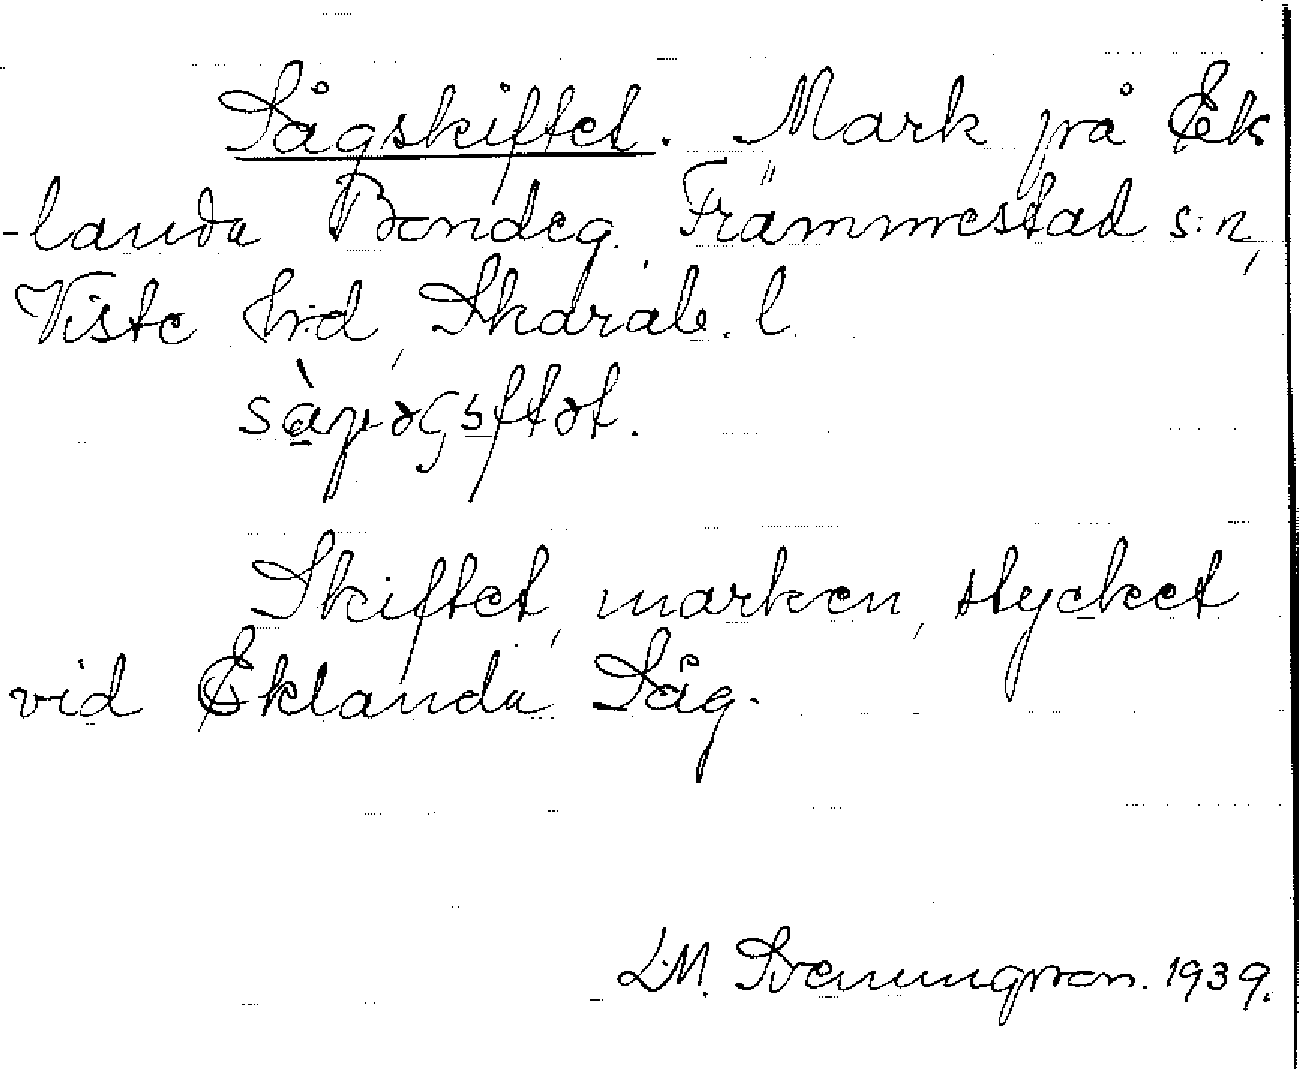 Sågskiftet. Mark på Ek
-landa Bondeg. Främmestad s:n,
Viste hrd, Skarab. l.
Skiftet, marken, stycket
vid Eklanda Såg.
L.M. Svenungsson. 1939.